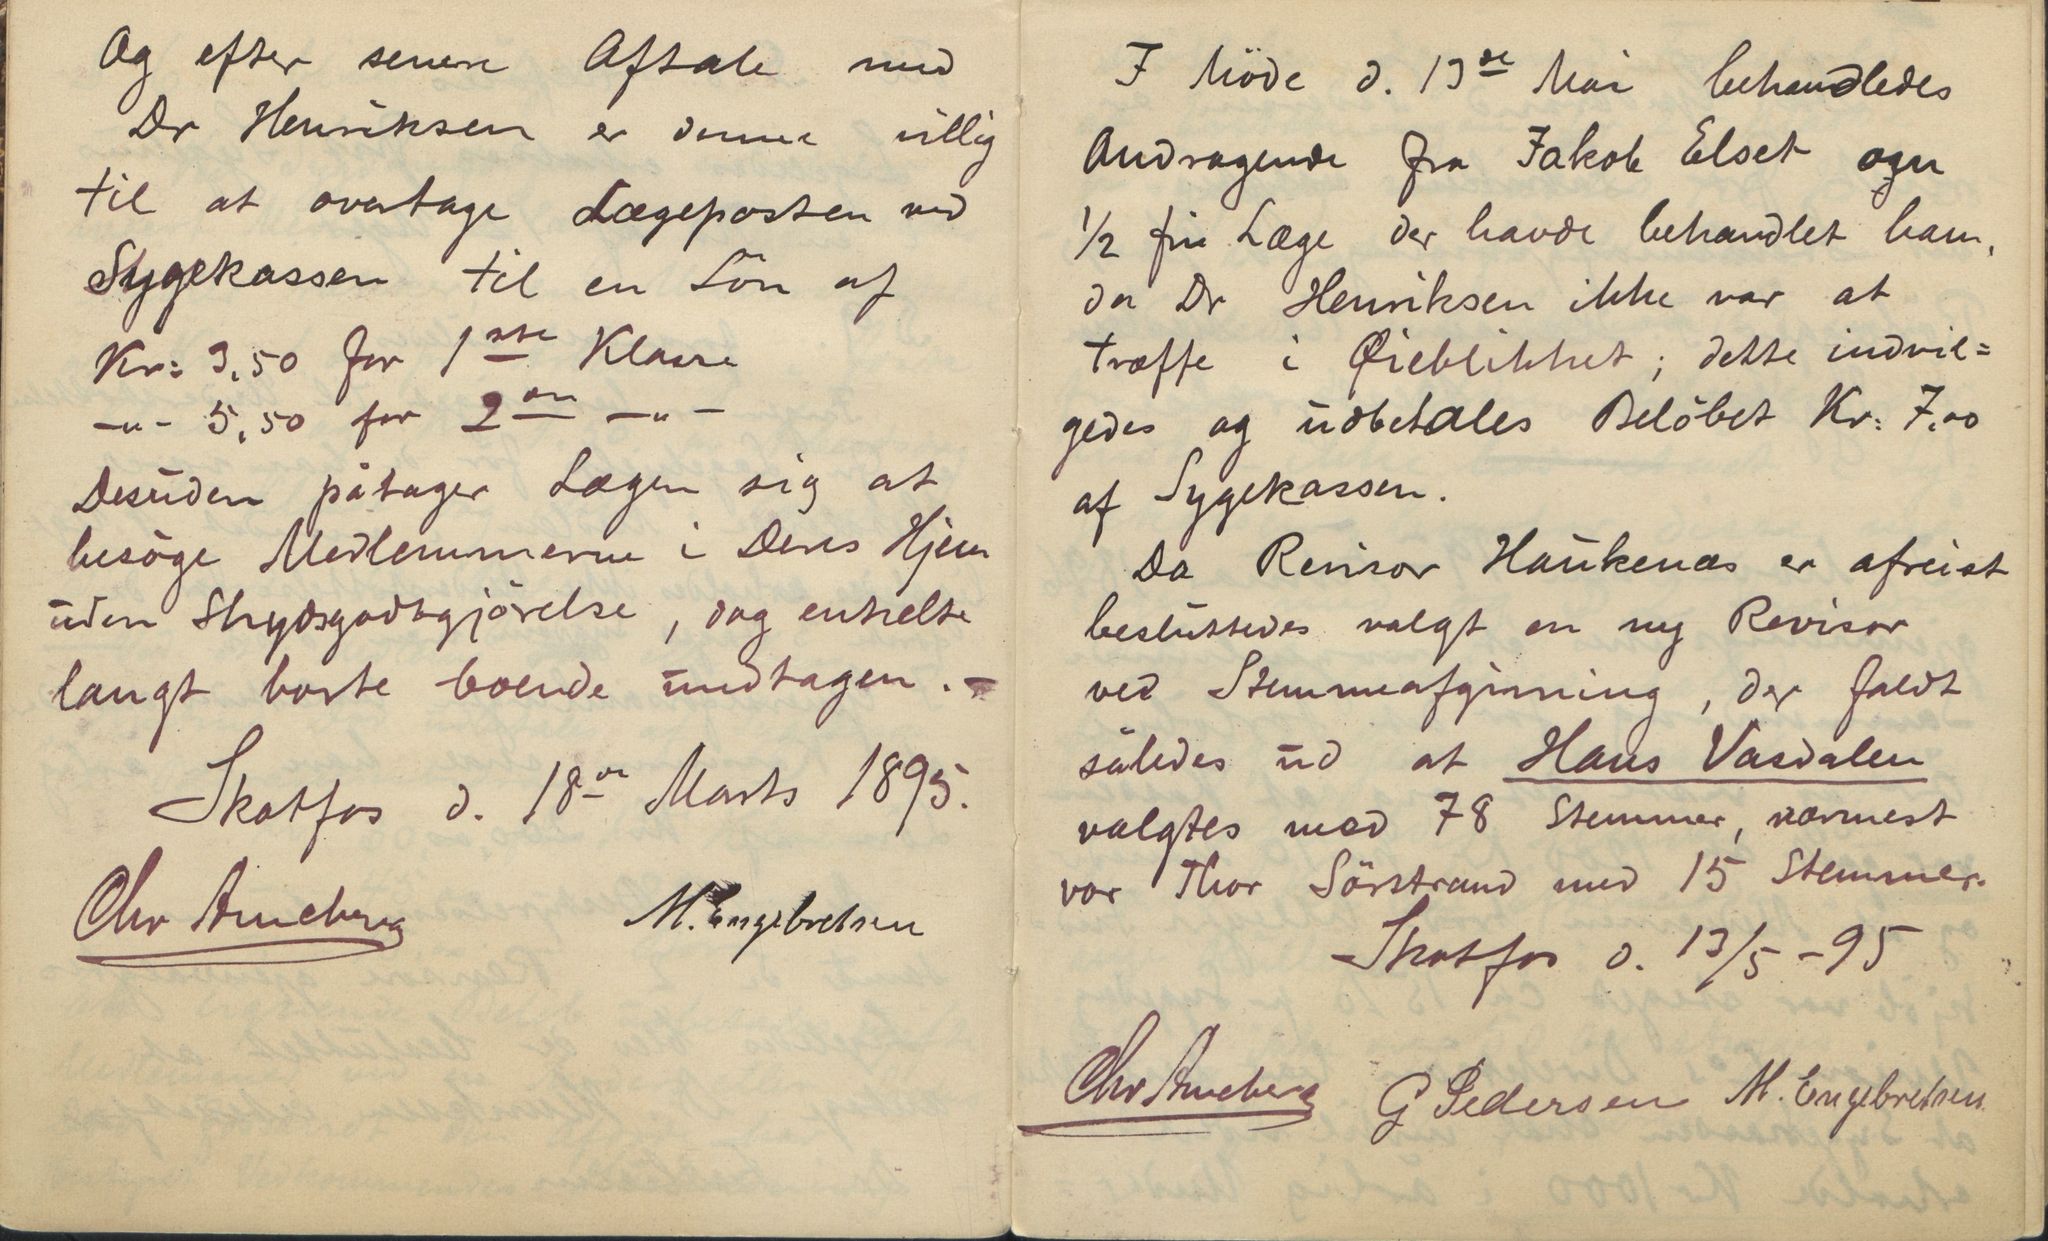 Og efter senere Aftale med
Dr Henriksen er denne villig
til at overtage Lægeposten ved
Sygekassen til en Lön af
Kr: 3,50 for 1ste Klasse
-"- 5,50 for 2den -"-
Desuden påtager Lægen sig at
besöge Medlemmerne i Deres Hjem
uden Skydsgodtgjörelse, dog enkelte
langt borte boende undtagen. -
Skotfos d. 18de Marts 1895.
Chr Arneberg M. Engebretsen
I Möde d. 13de Mai behandledes
Andragende fra Jakob Elset
1/2 fri Læge der havde behandlet ham,
da Dr Henriksen ikke var at
træffe i Øieblikket; dette indvil=
gedes og udbetales Belöbet Kr: 7.00
af Sygekassen.
Da Revisor Haukenæs er afreist
besluttedes valgt en ny Revisor
ved Stemmeafgivning, der faldt
således ud at Hans Vasdalen
valgtes med 78 Stemmer, nærmest
var Thor Sörstrand med 15 Stemmer.
Skotfos d. 13/5 - 95
Chr Arneberg G Pedersen M. Engebretsen